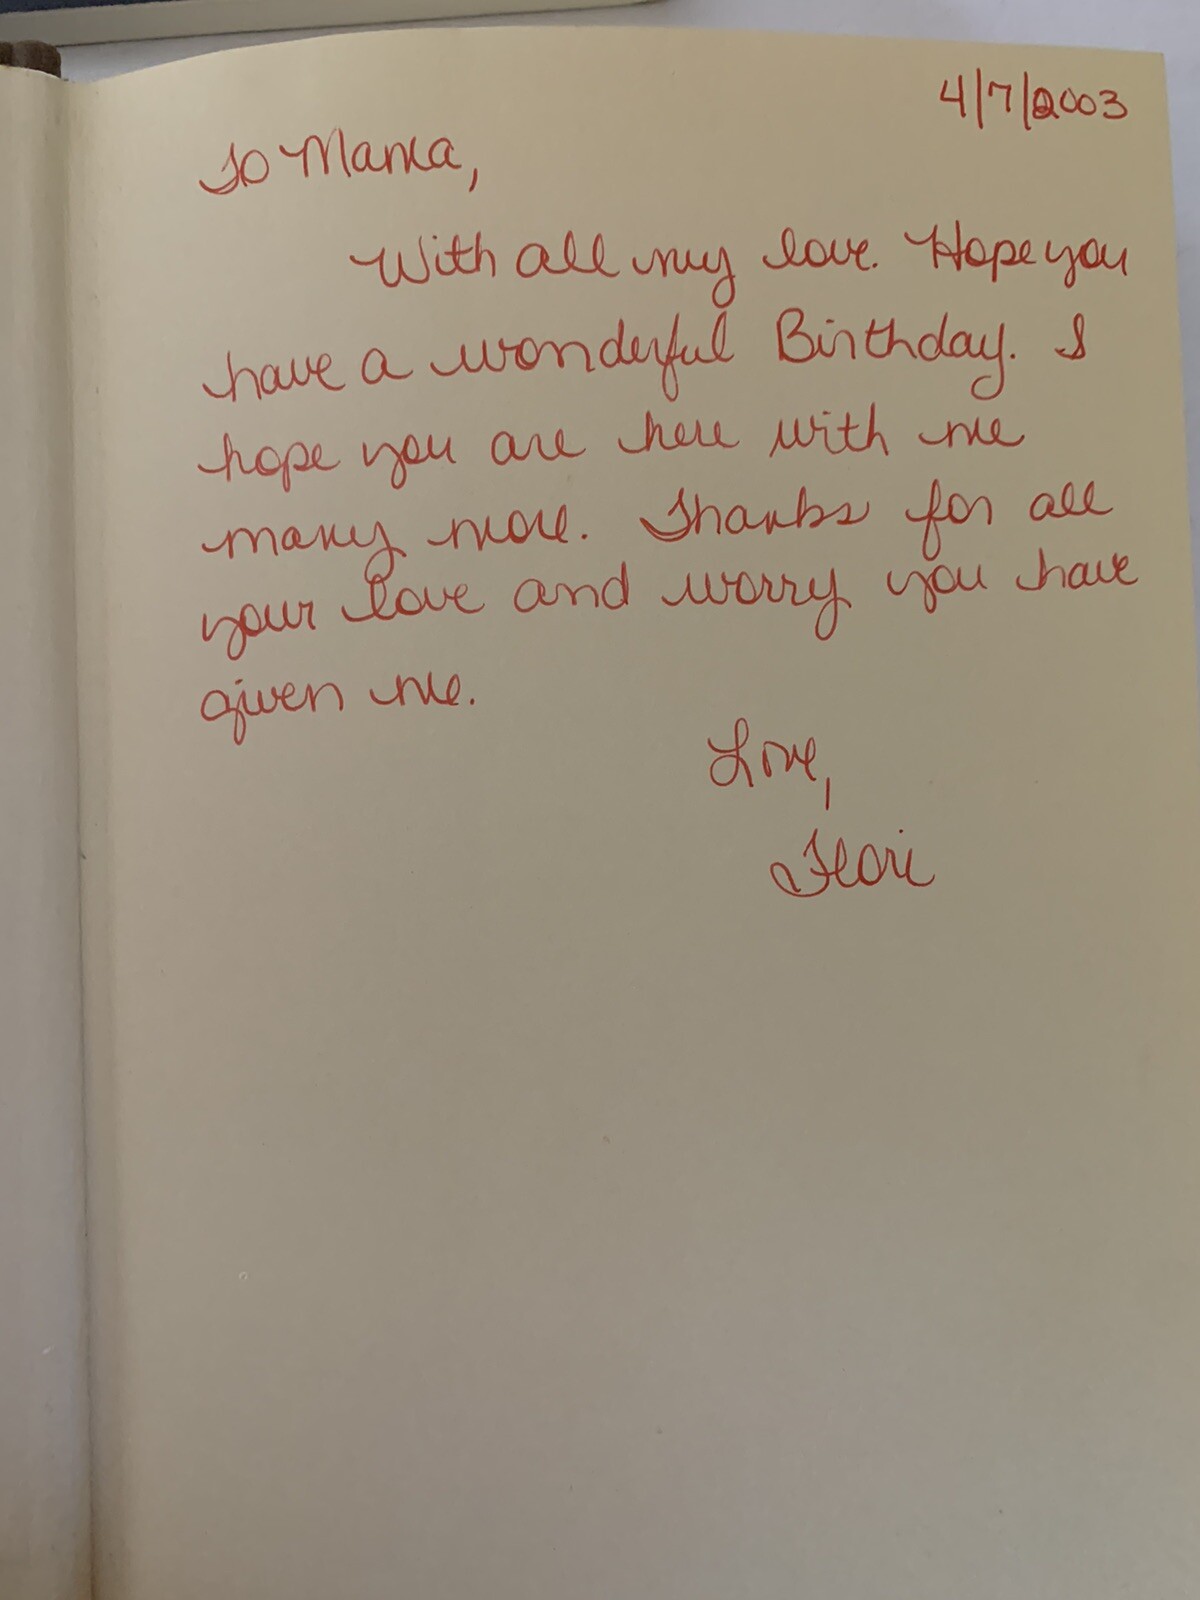 4/7/2003
To Mama,
With all my love. Hope you
have a wonderful Birthday. I
hope you are here with me
many more. Thanks for all
your love and worry you have
given me.
Love,
Flori